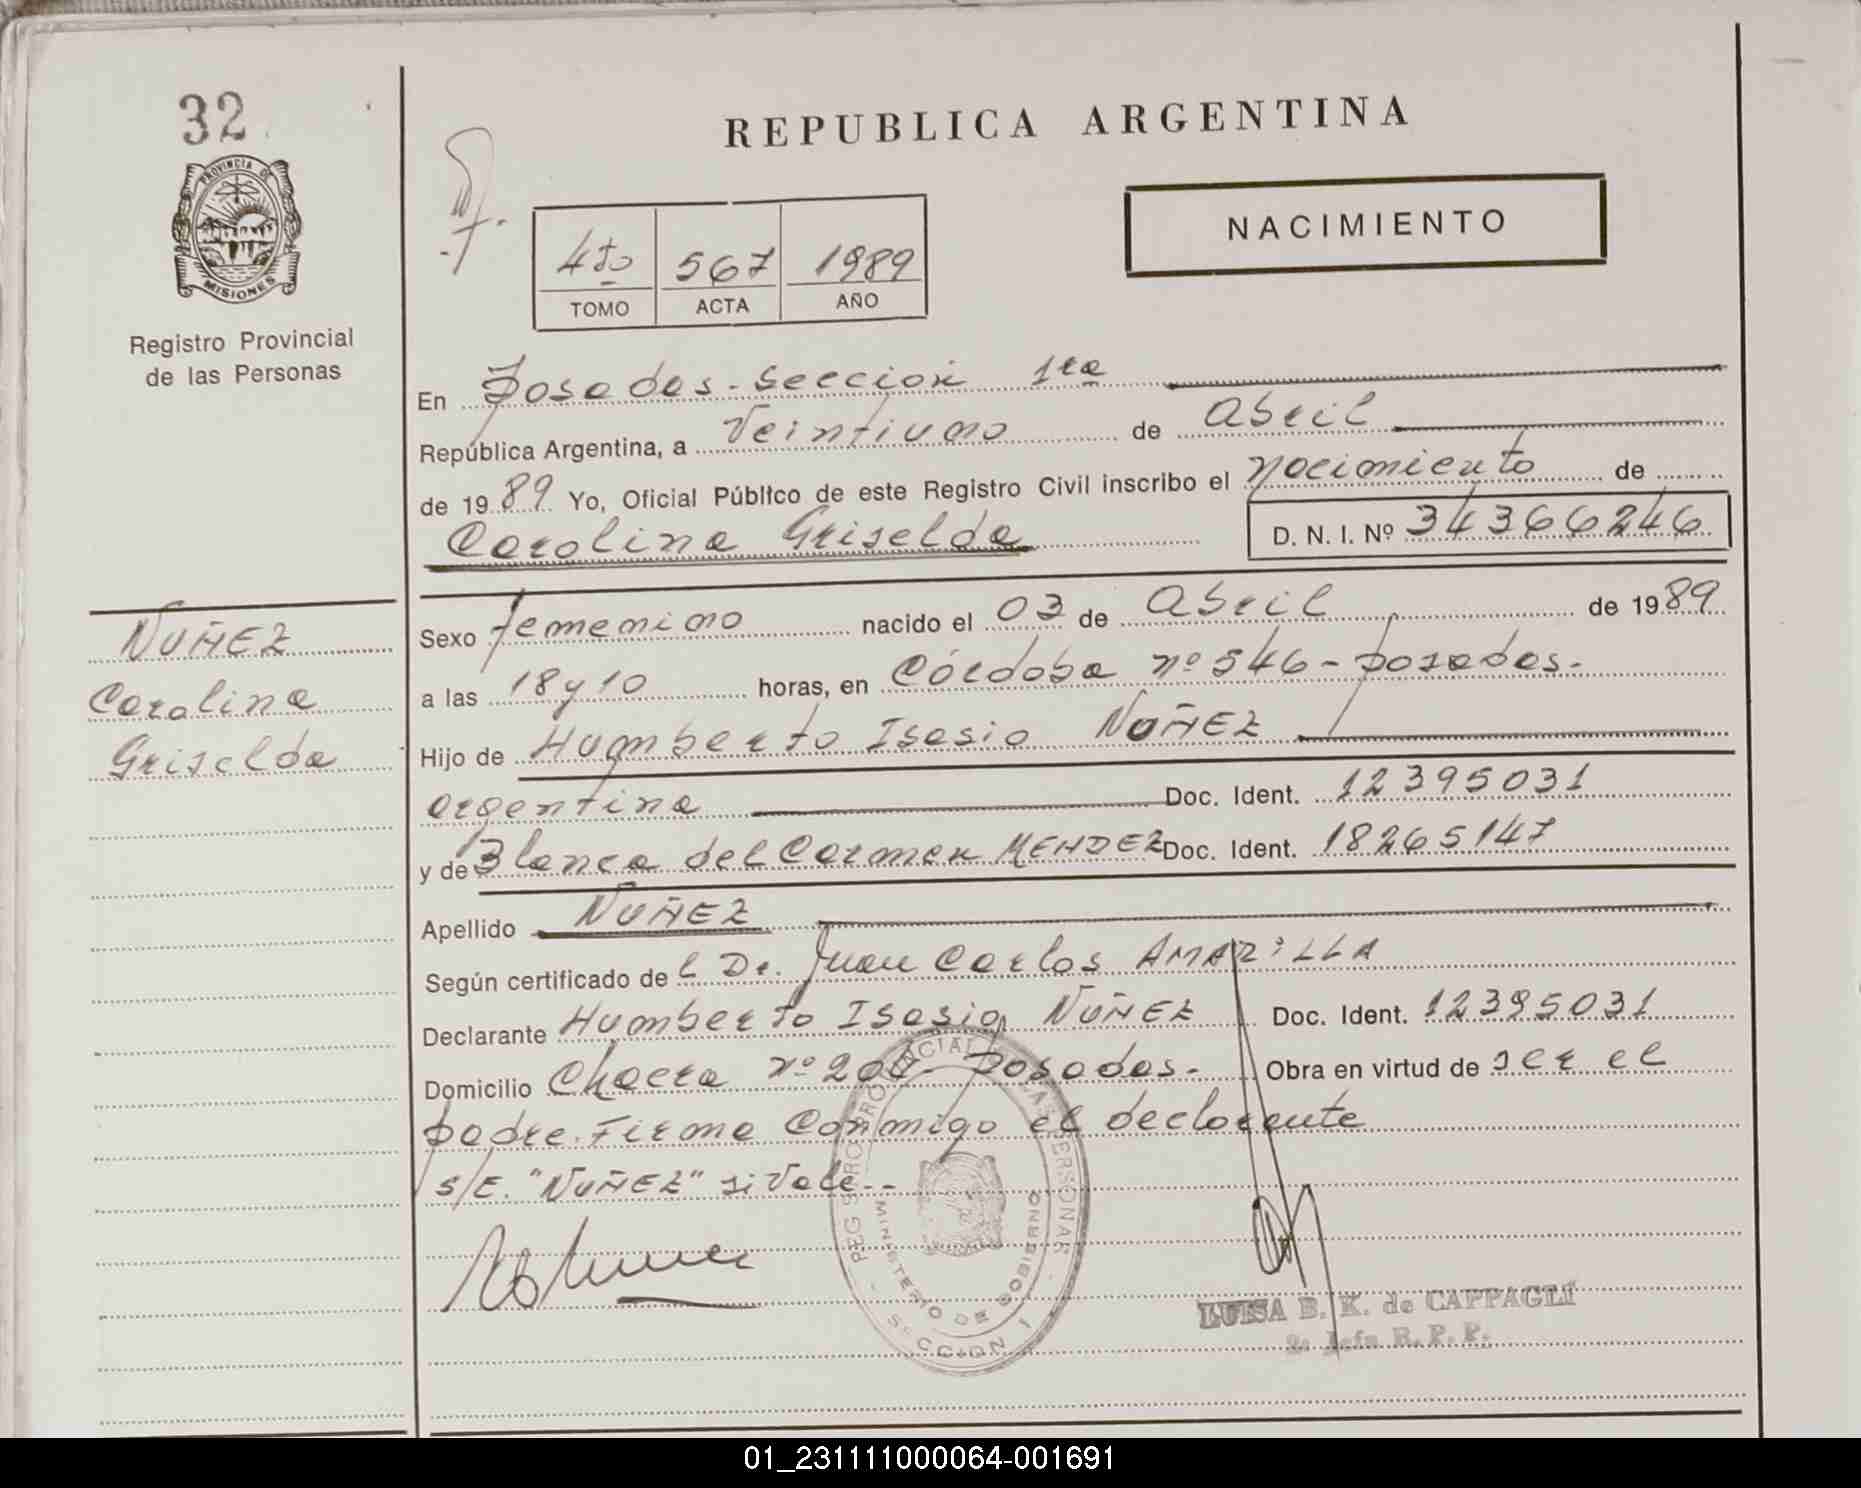 32
PROVINCIA DE
MISIONES
Registro Provincial
de las Personas
NUÑEZ
Carolina
Griselda
REPUBLICA ARGENTINA
NACIMIENTO
4to 567 1989
TOMO ACTA AÑO
En Posadas - Sección 1ra
República Argentina, a Veintiuno de Abril
de 1989 Yo, Oficial Público de este Registro Civil inscribo el nacimiento de
Carolina Griselda D. N. I. Nº 34366246
Sexo femenino nacido el 03 de Abril de 1989
a las 18 y 10 horas, en Córdoba nº 546 - Posadas.
Hijo de Humberto Isasio NUÑEZ
argentina Doc. Ident. 12395031
y de Blanca del Carmen MENDEZ Doc. Ident. 18265147
Apellido NUÑEZ
Según certificado del Dr. Juan Carlos AMARILLA
Declarante Humberto Isasio NUÑEZ Doc. Ident. 12395031
Domicilio Chacra nº Posadas.- Obra en virtud de ser el
padre. Firma conmigo el declarante
S/E. "NUÑEZ" si Vale.-
MINISTERIO DE GOBIERNO
LUISA B. K. de CAPPAGLI
2a Jefa R. P. P.
01_231111000064-001691